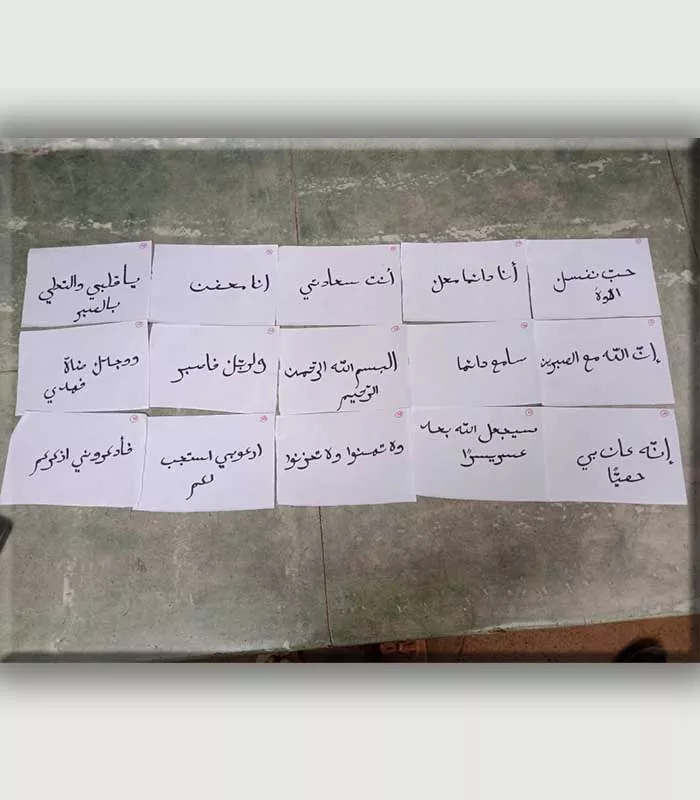 حبّ نفسك
أولاً
أنا دائما معك
أنت سعادتي
أنا معك
يا قلبي والتحلي
بالصبر
إنّ الله مع الصبرين
سامع دائما
البسم الله الرّحمن
الرّحيم
ولربّك فاصبر
ووجدك ضالّا
فهدي
إنّه كان بي
حفيّا
سيجعل الله بعد
عسر يسرًا
ولا تهنوا ولا تحزنوا
ادعوني استجب
لكم
فأذكروني اذكركم